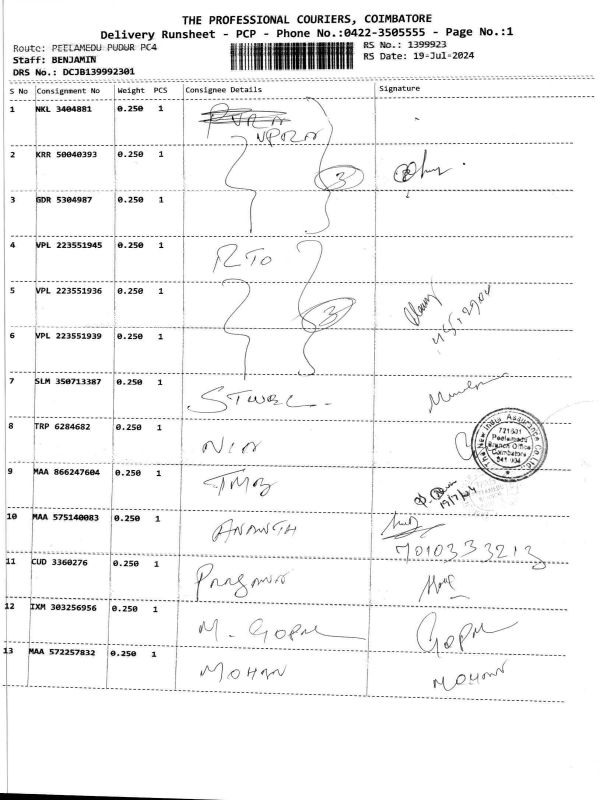 THE PROFESSIONAL COURIERS, COIMBATORE
Delivery Runsheet - PCP - Phone No.:0422-3505555 - Page No.:1
Route: PEELAMEDU PUDUR PC4
RS No.: 1399923
Staff: BENJAMIN
RS Date: 19-Jul-2024
DRS No.: DCJB139992301
S No Consignment No Weight PCS Consignee Details Signature
1 NKL 3404881 0.250 1
2 KRR 50040393 0.250 1 3
3 GDR 5304987 0.250 1
4 VPL 223551945 0.250 1 RTO
5 VPL 223551936 0.250 1 3
6 VPL 223551939 0.250 1
7 SLM 350713387 0.250 1
8 TRP 6284682 0.250 1
The New India Assurance Co. Ltd.
721601
Peelamedu
Branch Office
Coimbatore
641 004
9 MAA 866247604 0.250 1 TMB
19/7/24
10 MAA 575140083 0.250 1 ANANTH
7010333213
11 CUD 3360276 0.250 1
12 IXM 303256956 0.250 1 M. GOPAL GOPAL
13 MAA 572257832 0.250 1 MOHAN MOHAN